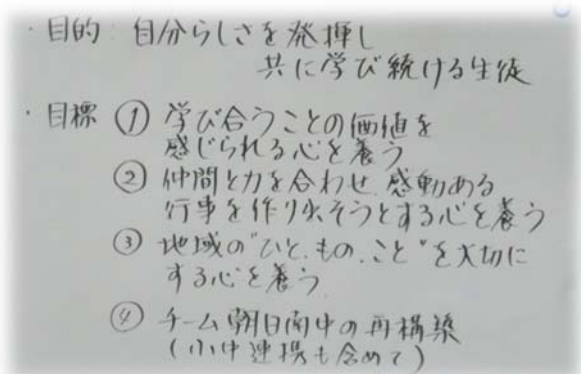 ・目的 自分らしさを発揮し
共に学び続ける生徒
・目標 ① 学び合うことの価値を
感じられる心を養う
② 仲間と力を合わせ、感動ある
行事を作り出そうとする心を養う
③ 地域の"ひと、もの、こと"を大切に
する心を養う
④ チーム朝日南中の再構築
(小中連携も含めて)